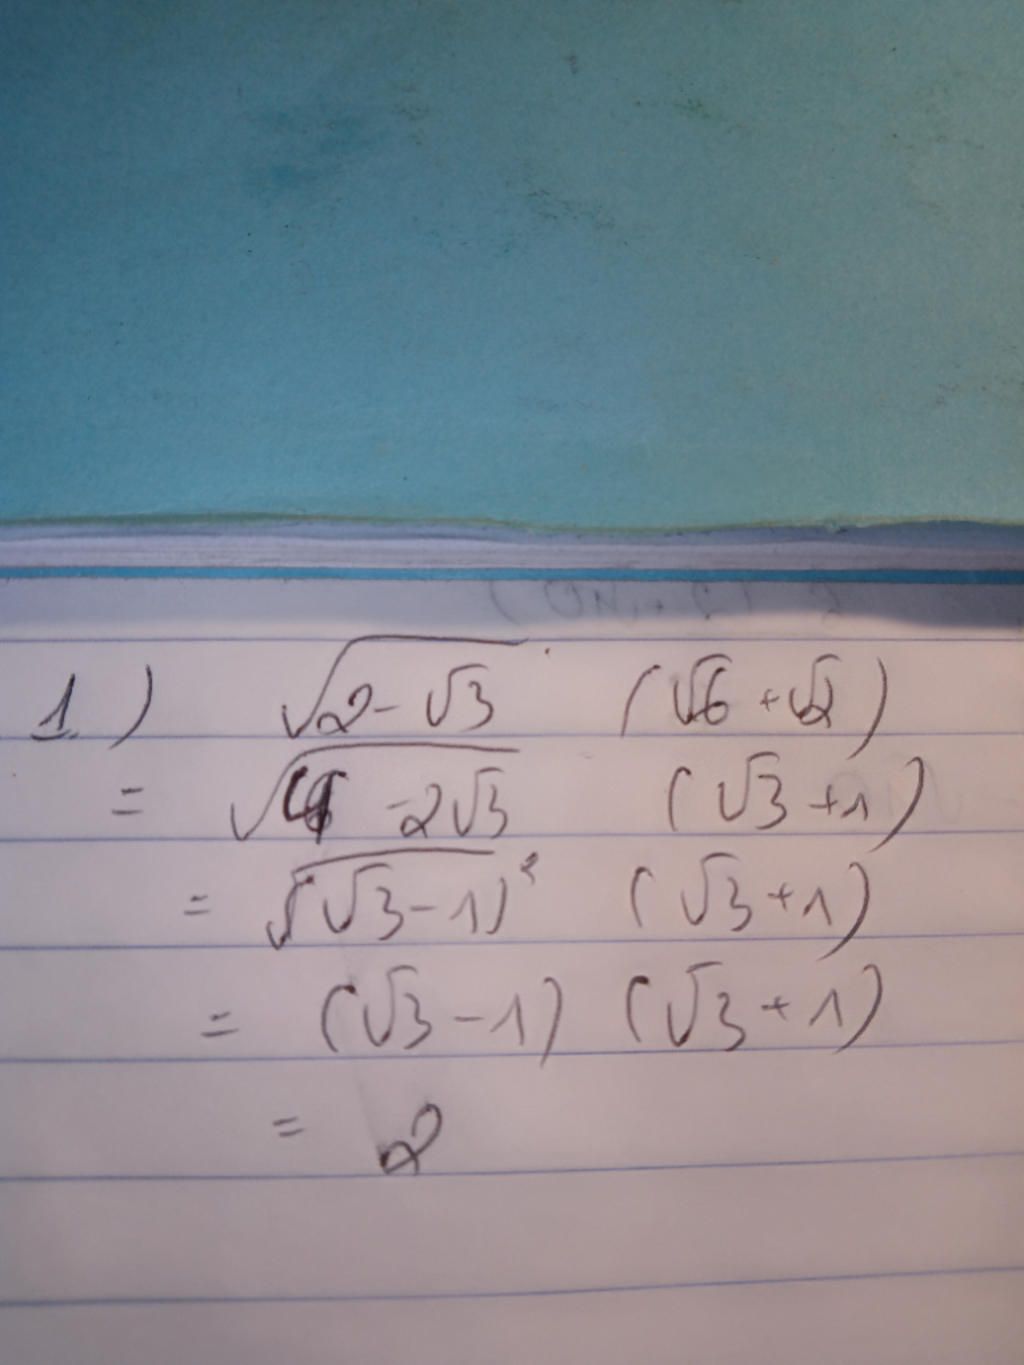 1.) √(2-√3) (√6+√2)
= √(4-2√3) (√3+1)
= √(√3-1)² (√3+1)
= (√3-1) (√3+1)
= 2